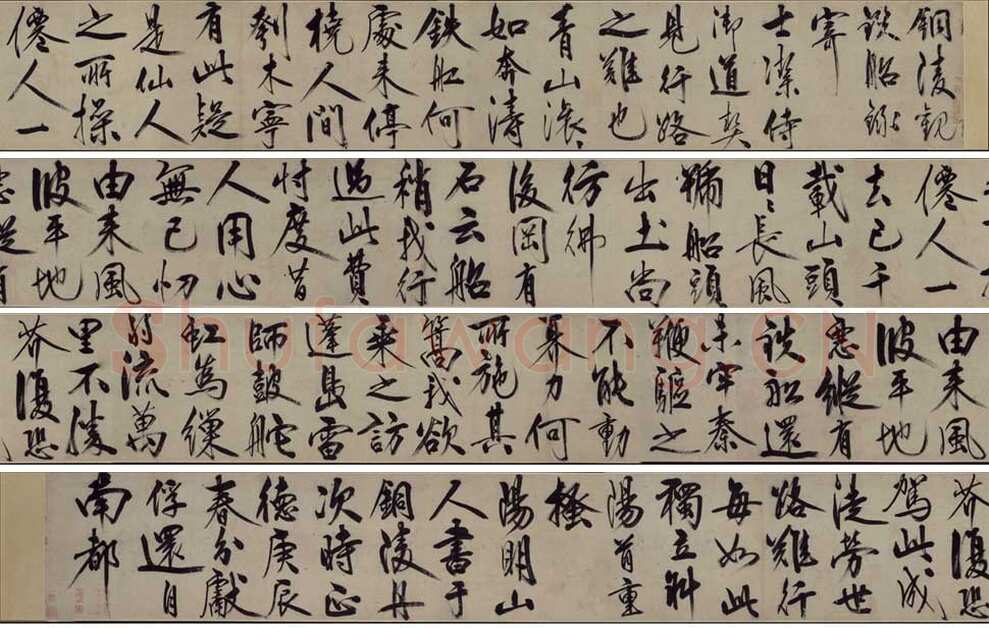 銅陵觀
鉄船録
寄
士潔侍
御道契
見行路
之難也
青山滚〻
如奔濤
鉄舡何
處来停
橈人間
刳木寧
有此疑
是仙人
之所操
僊人一
僊人一
去已千
載山頭
日〻長風
號船頭
出土尚
彷彿
後岡有
石云船
稍我行
過此費
忖度昔
人用心
無已忉
由来風
波平地
由来風
波平地
惡縱有
鉄舡還
未牢秦
鞭驅之
不能動
奡力何
所施其
篙我欲
乘之訪
蓬島雷
師鼓舵
虹為繅
弱流萬
里不勝
芥復恐
芥復恐
駕此成
徒勞世
路難行
每如此
獨立斜
陽首重
搔
陽明山
人書于
銅陵舟
次時正
德庚辰
春分獻
俘還自
南都
Shufawang.CN